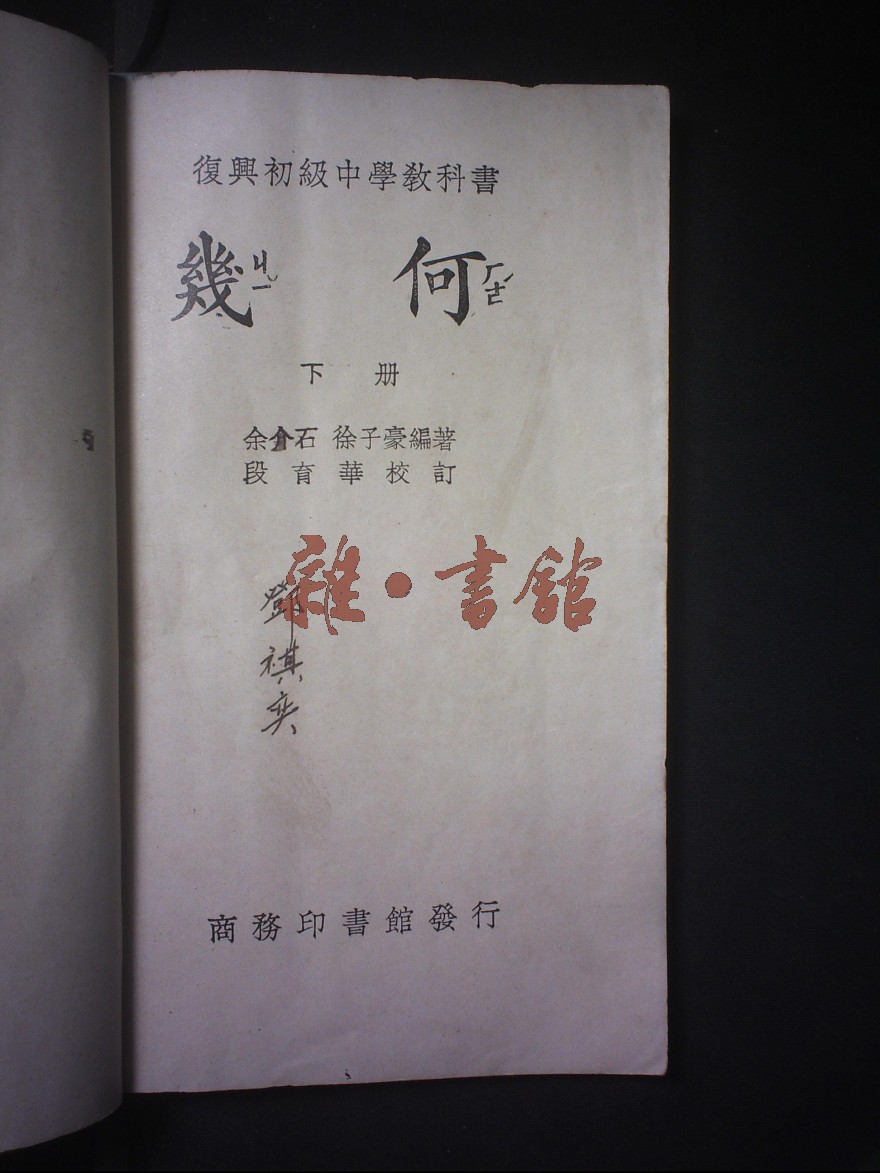 復興初級中學教科書
幾ㄐㄧ 何ㄏㄜˊ
下册
余介石 徐子豪編著
段育華校訂
雜·書館
鄧祺奕
商務印書館發行